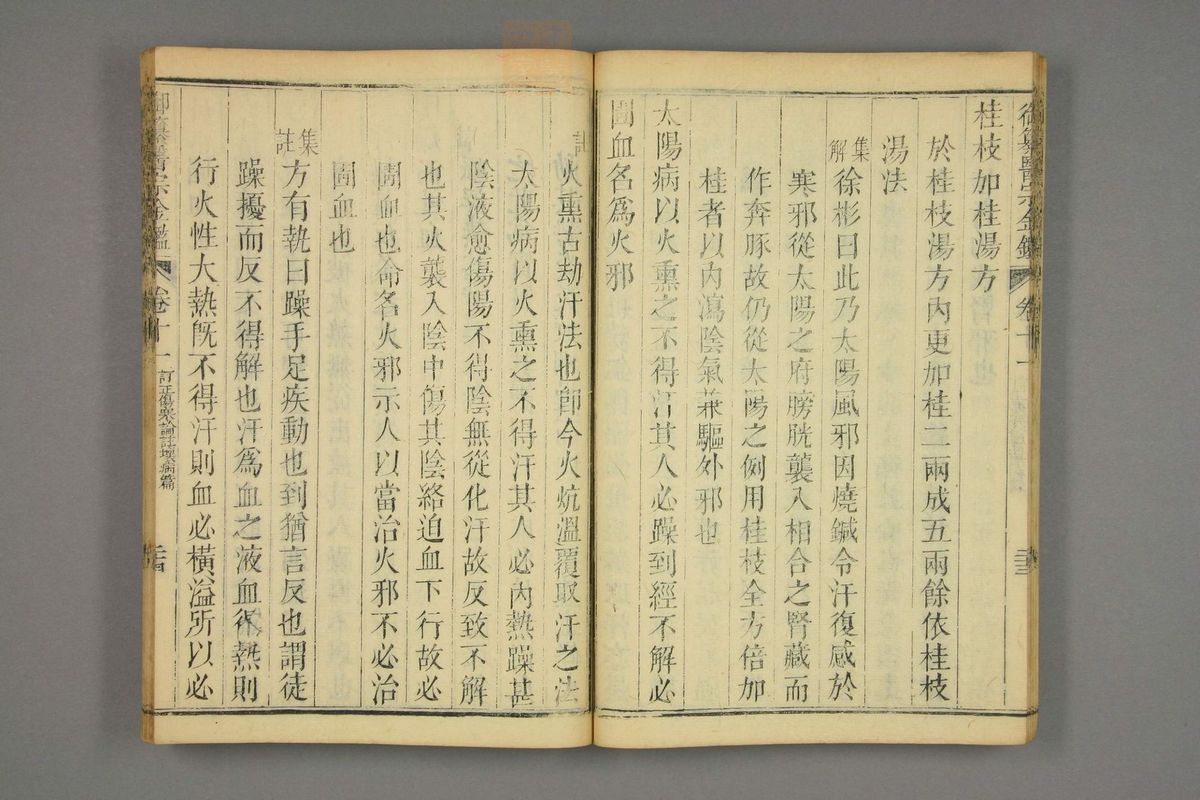 御纂醫宗金鑑 卷十一 三十三
桂枝加桂湯方
於桂枝湯方內更加桂二兩成五兩餘依桂枝
湯法
集解
徐彬曰此乃太陽風邪因燒鍼令汗復感於
寒邪從太陽之府膀胱襲入相合之腎藏而
作奔豚故仍從太陽之例用桂枝全方倍加
桂者以內瀉陰氣兼驅外邪也
太陽病以火熏之不得汗其人必躁到經不解必
圊血名爲火邪
註
火熏古劫汗法也卽今火炕溫覆取汗之法
太陽病以火熏之不得汗其人必內熱躁甚
陰液愈傷陽不得陰無從化汗故反致不解
也其火襲入陰中傷其陰絡迫血下行故必
圊血也命名火邪示人以當治火邪不必治
圊血也
集註
方有執曰躁手足疾動也到猶言反也謂徒
躁擾而反不得解也汗爲血之液血得熱則
行火性大熱旣不得汗則血必橫溢所以必
御纂醫宗金鑑 卷十一 訂正傷寒論註壞病篇 三十四